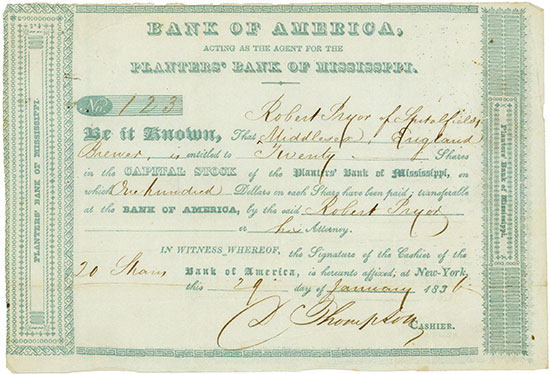 BANK OF AMERICA,
ACTING AS THE AGENT FOR THE
PLANTERS' BANK OF MISSISSIPPI.
No. 123
Robert Pryor of Spitalfields
Be it Known, That Middlesex, England
Brewer, is entitled to Twenty Shares
in the CAPITAL STOCK of the Planters' Bank of Mississippi, on
which One hundred Dollars on each Share have been paid; transferable
at the BANK OF AMERICA, by the said Robert Pryor
or his Attorney.
IN WITNESS WHEREOF, the Signature of the Cashier of the
20 Shares Bank of America, is hereunto affixed, at New-York,
this 29 day of January 1836
D Thompson CASHIER.
PLANTERS' BANK OF MISSISSIPPI.
Planters' Bank of Mississippi.